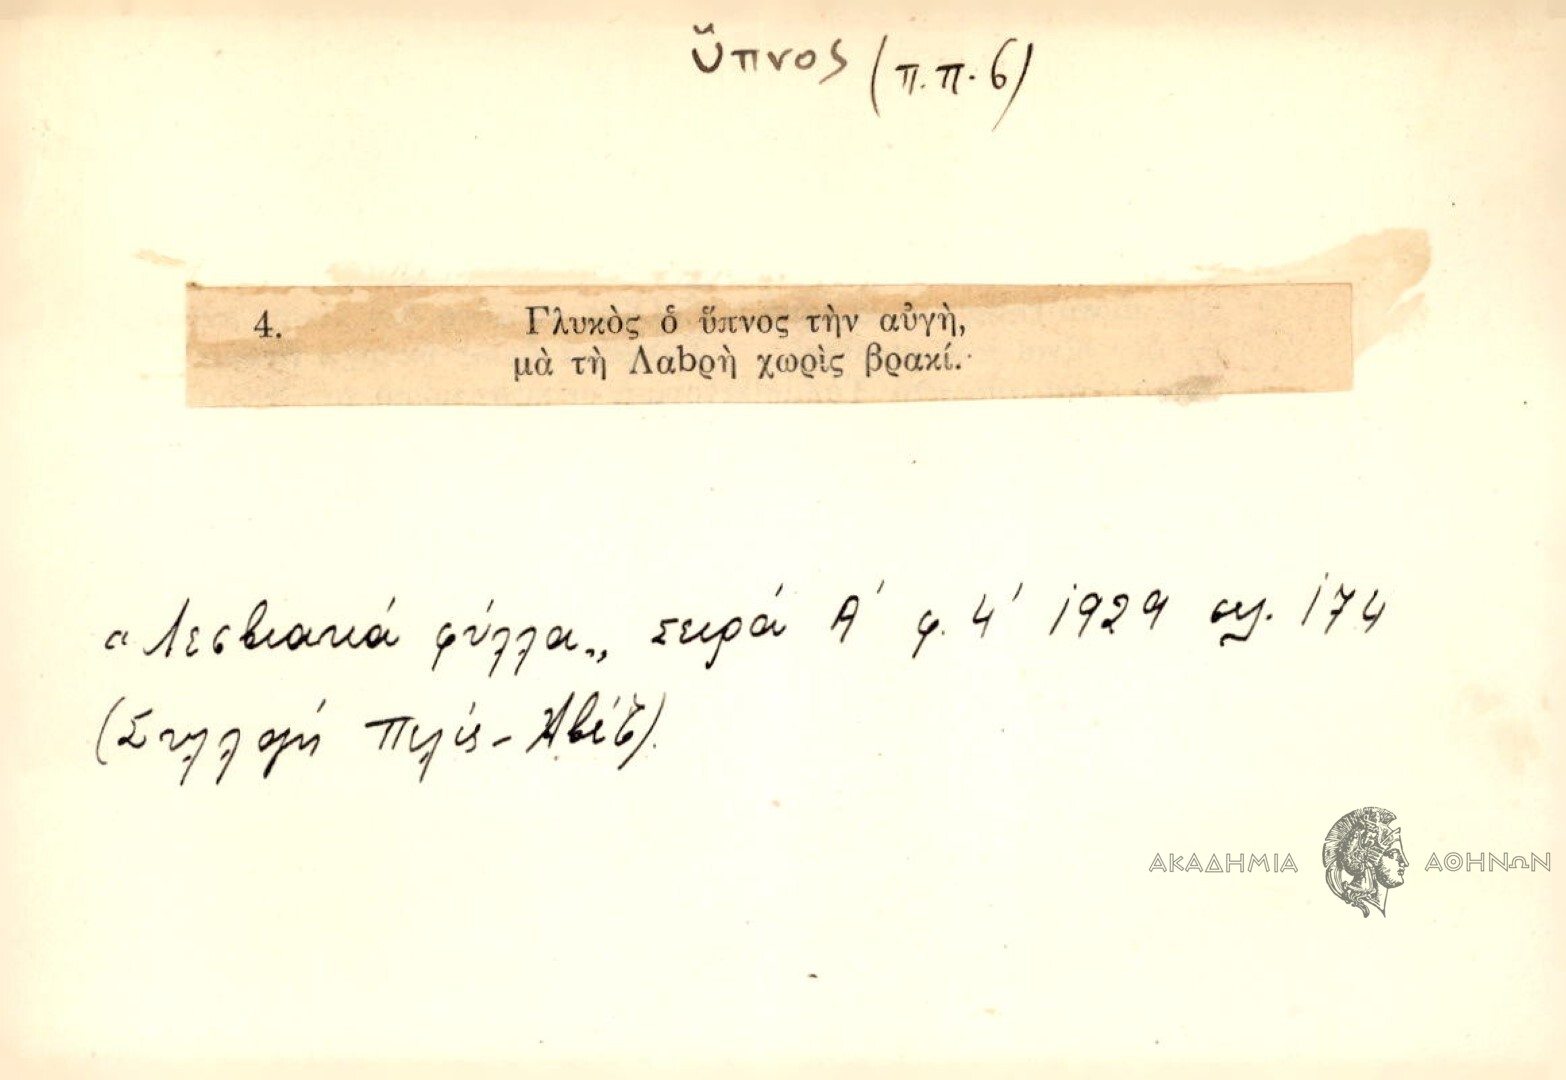 ὕπνος (π.π. 6)
4. Γλυκὸς ὁ ὕπνος τὴν αὐγὴ,
μὰ τὴ Λαbρὴ χωρὶς βρακί.
«Λεσβιακά φύλλα„ σειρά Α' φ. 4' 1929 σελ. 174
(Συλλογή Πιλίς - Ἀβέζ).
ΑΚΑΔΗΜΙΑ ΑΘΗΝΩΝ